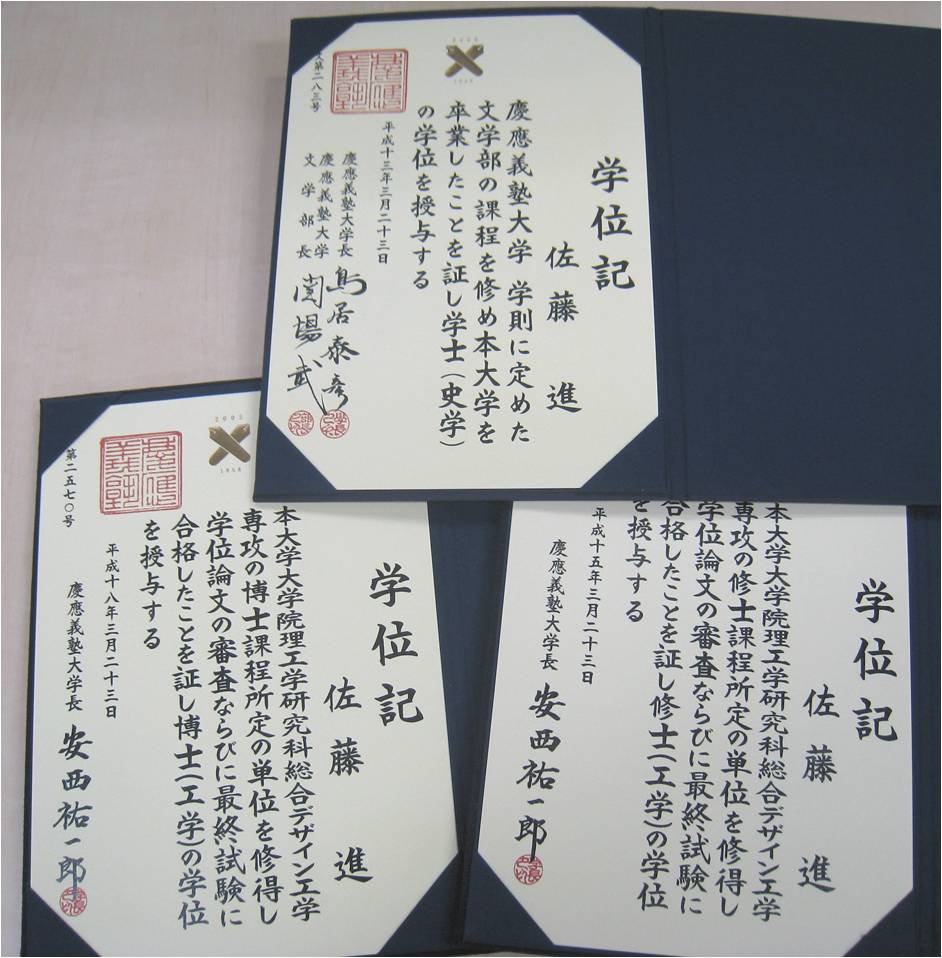 学位記
佐藤 進
慶應義塾大学 学則に定めた
文学部の課程を修め本大学を
卒業したことを証し学士(史学)
の学位を授与する
平成十三年三月二十三日
慶應義塾大学長 鳥居泰彦
慶應義塾大学
文学部長 関場武
文第二八三号
学位記
佐藤 進
本大学大学院理工学研究科総合デザイン工学
専攻の修士課程所定の単位を修得し
学位論文の審査ならびに最終試験に
合格したことを証し修士(工学)の学位
を授与する
平成十五年三月二十三日
慶應義塾大学長 安西祐一郎
学位記
佐藤 進
本大学大学院理工学研究科総合デザイン工学
専攻の博士課程所定の単位を修得し
学位論文の審査ならびに最終試験に
合格したことを証し博士(工学)の学位
を授与する
平成十八年三月二十三日
慶應義塾大学長 安西祐一郎
第二五七〇号
2005
1858